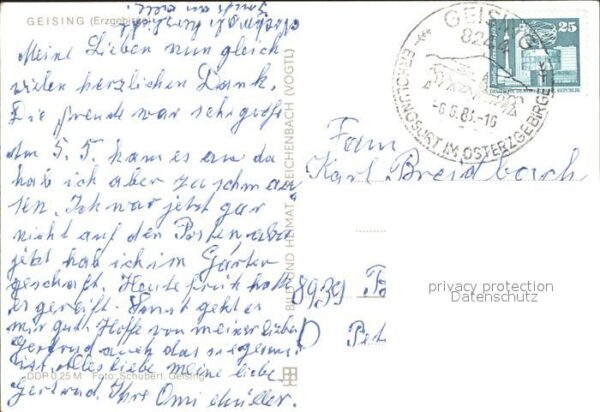 GEISING (Erzgebirge)
Meine Lieben nun gleich
vielen herzlichen Dank.
Die freude war sehr groß
Am 5. 5. kam es an da
hab ich aber zu schmau
sen. Ich war jetzt gar
nicht auf den Posten aber
jetzt hab ich im Garten
geschaft. Heute früh hatt
es gereift. Sonst geht es
mir gut. Hoffe von meiner lieben
Gertrud auch das sie gesund
ist. Alles liebe meine liebe
Gertrud, Ihre Omi
DDR 0,25 M Foto: Schubert, Geising
BILD UND HEIMAT REICHENBACH (VOGTL)
GEISING
8244
-6.5.81.-16
ERHOLUNGSORT IM OSTERZGEBIRGE
25
Fam.
Karl Breidbach
8939
D
privacy protection
Datenschutz